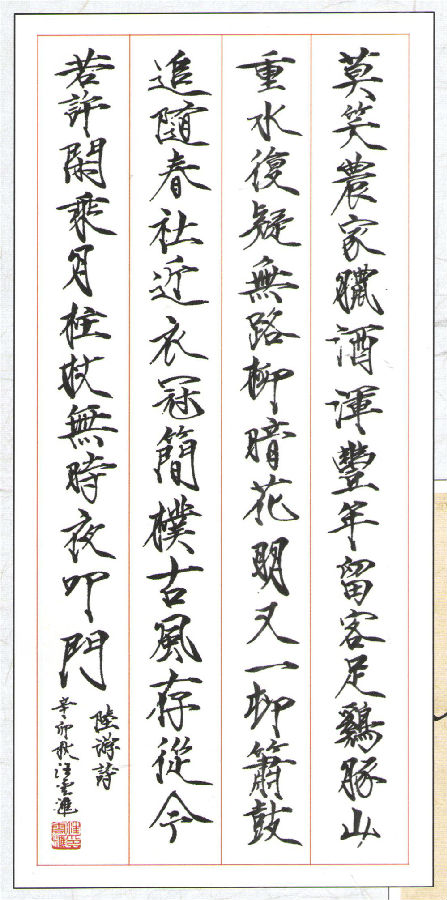 莫笑農家臘酒渾豐年留客足鷄豚山
重水復疑無路柳暗花明又一柳簫鼓
追隨春社近衣冠簡樸古風存從今
若許閑乘月柱杖無時夜叩門
陸游詩
辛卯秋汪